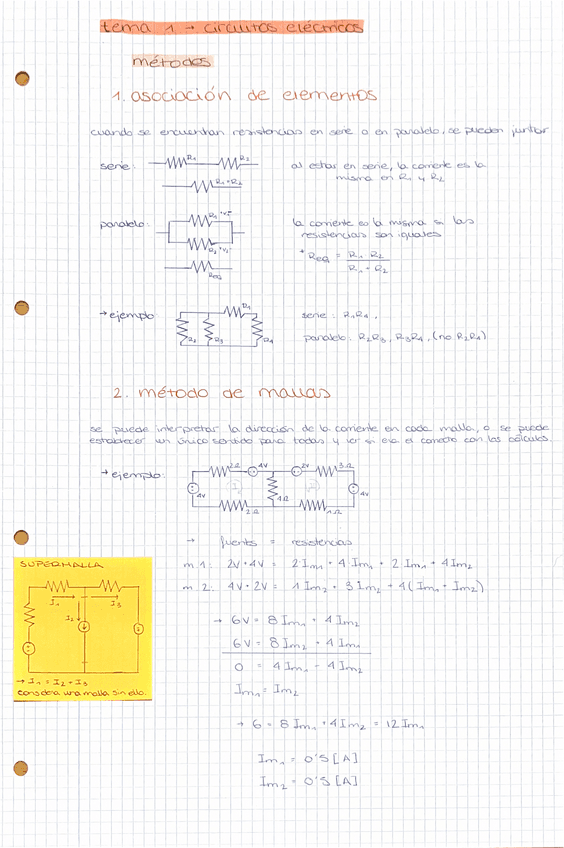 tema 1 → circuitos eléctricos
métodos
1. asociación de elementos
cuando se encuentran resistencias en serie o en paralelo, se pueden juntar
serie: R1 R2 al estar en serie, la corriente es la
R1+R2 misma en R1 y R2
paralelo: R1 la corriente es la misma si las
R2 resistencias son iguales
REQ * REQ = R1 · R2
R1 + R2
→ ejemplo: R1 serie: R1R4,
R2 R3 R4 paralelo: R2R3, R3R4, (no R2R4)
2. método de mallas
se puede interpretar la dirección de la corriente en cada malla, o se puede
establecer un único sentido para todas y ver si era el correcto con los cálculos.
→ ejemplo: 2Ω 4V 2V 3Ω
4V 4Ω 4V
2Ω 1Ω
→ fuents = resistencias
m. 1: 2V + 4V = 2·Im1 + 4·Im1 + 2·Im1 + 4Im2
m. 2: 4V + 2V = 1Im2 + 3Im2 + 4(Im1 + Im2)
→ 6V = 8Im1 + 4Im2
6V = 8Im2 + 4Im1
0 = 4Im1 - 4Im2
Im1 = Im2
→ 6 = 8Im1 + 4Im2 = 12Im1
Im1 = 0'5 [A]
Im2 = 0'5 [A]
SUPERMALLA
I1 I3
I2
→ I1 = I2 + I3
considera una malla sin ello.